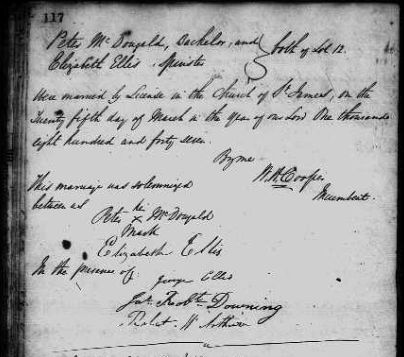 117
Peter McDougald, Bachelor, and
Elizabeth Ellis Spinster
both of Lot 12
Were married by License in the Church of St James, on the
Twenty fifth day of March in the Year of our Lord One thousand
eight hundred and forty seven.
By me
W. H. Cooper
Incumbent.
This marriage was solemnized
between us
his
Peter x McDougald
Mark
Elizabeth Ellis
In the presence of
George Ellis
Jno Robt Downing
Robert W